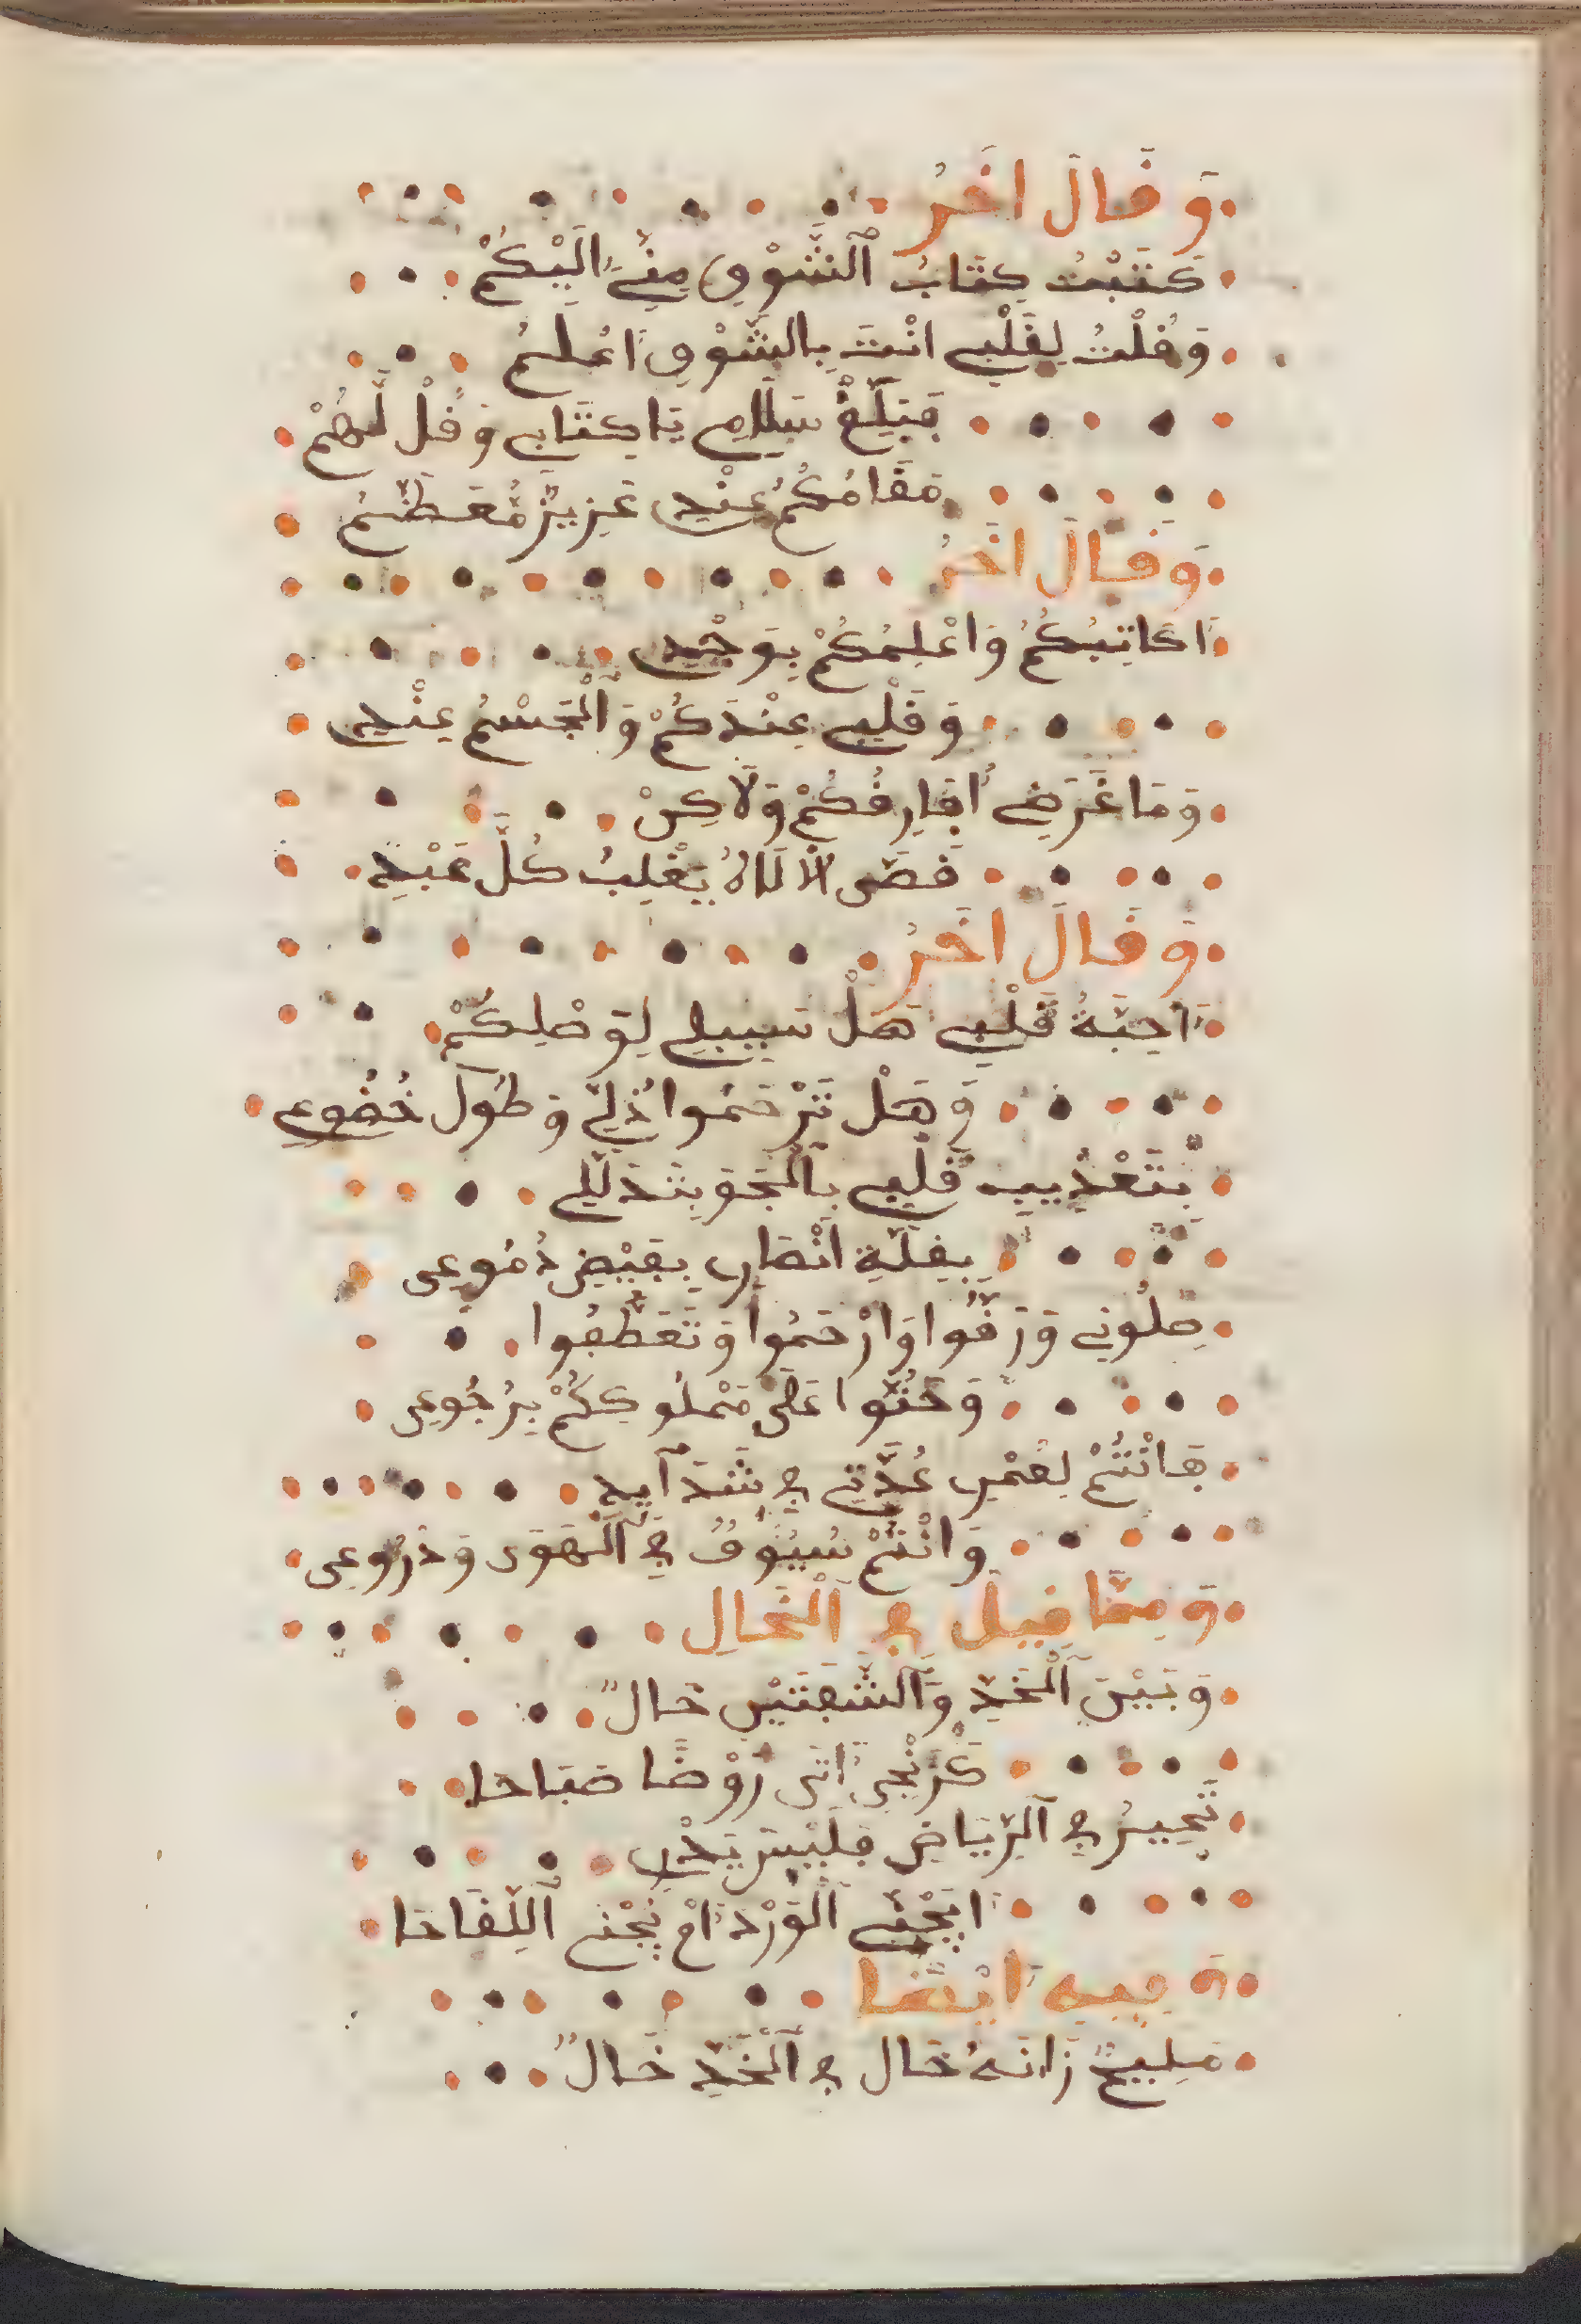 وَقَالَ اخَرُ
كَتَبْتُ كِتَابَ ٱلشَّوْقِ مِنِّي إِلَيْكُمْ
وَقُلْتُ لِقَلْبِي انْتَ بِالشَّوْقِ أَعْلَمُ
فَبَلِّغْ سَلَامِي يَا كِتَابِي وَقُلْ لَّهُمْ
مَقَامُكُمُ عِنْدِي عَزِيزٌ مُّعَظَّمُ
وَقَالَ اخَرُ
أُكَاتِبُكُمُ وَاعْلِمُكُمْ بِوَجْدِي
وَقَلْبِي عِنْدَكُمْ وَٱلْجَسْمُ عِنْدِي
وَمَا غَرَضِي أُفَارِقُكُمْ وَلَاكِنْ
قَضَى الْالَاهُ يَغْلِبُ كُلَّ عَبْدِ
وَقَالَ اخَرُ
أَحِبَّةُ قَلْبِي هَلْ سَبِيلِي لِوَصْلِكُمْ
وَهَلْ تَرْحَمُوا ذُلِّي وَطُولَ خُضُوعِي
بِتَعْذِيبِ قَلْبِي بِٱلْجَوَ بِتَذَلُّلِي
بِقِلَّةِ انْصَارِي بِفَيْضِ دُمُوعِي
صِلُونِي وَرَقُّوا وَارْحَمُوا وَتَعَطَّفُوا
وَحُنُّوا عَلَى مَمْلُوكِكُمْ بِرُجُوعِي
فَانْتُمْ لِعُمْرِي عُدَّتِي فِي شَدَآيِدِي
وَانْتُمْ سُيُوفُ فِي ٱلْهَوَى وَدُرُوعِي
وَمِمَّا قِيلَ فِي ٱلْخَالِ
وَبَيْنَ ٱلْخَدِّ وَٱلشَّفَتَيْنِ خَالٌ
كَزَنْجِيٍّ أَتَى رَوْضًا صَبَاحَا
تَحَيَّرَ فِي ٱلرِّيَاضِ فَلَيْسَ يَدْرِي
أَيَجْنِي ٱلْوَرْدَ أَمْ يَجْنِي ٱللِّقَاحَا
وَفِيهِ أَيْضًا
مَلِيحٌ زَانَهُ خَال فِي ٱلْخَدِّ خَالٌ